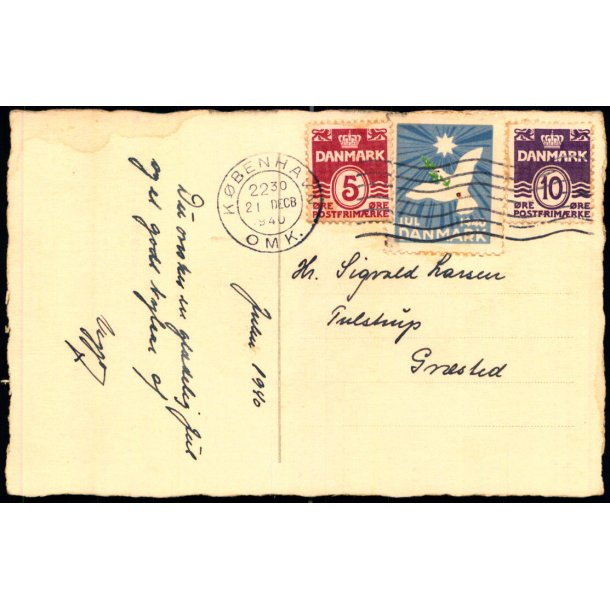 DANMARK
5
ØRE ØRE
POSTFRIMÆRKE
JUL 1940
DANMARK
DANMARK
10
ØRE ØRE
POSTFRIMÆRKE
KØBENHAVN
2230
21 DECB
1940
OMK.
Hr. Sigvald Larsen
Tulstrup
Græsted
Julen 1940
Du ønskes en glædelig Jul
og et godt Nytaar af
Viggo